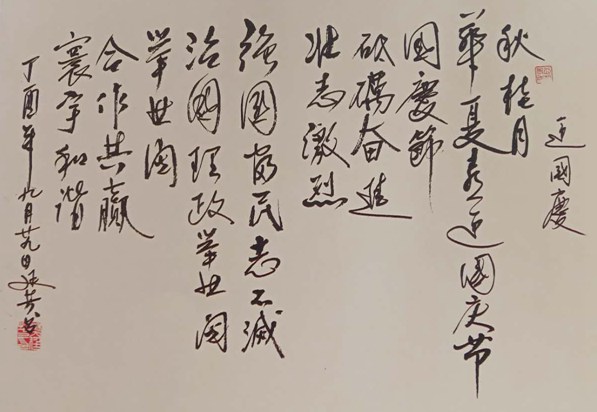 迎國慶
秋桂月
華夏喜迎國庆节
國慶節
砥礪奋進
壮志激烈
強國富民志不滅
治國理政举世
举世
合作共赢
寰宇和谐
丁酉年九月廿九日